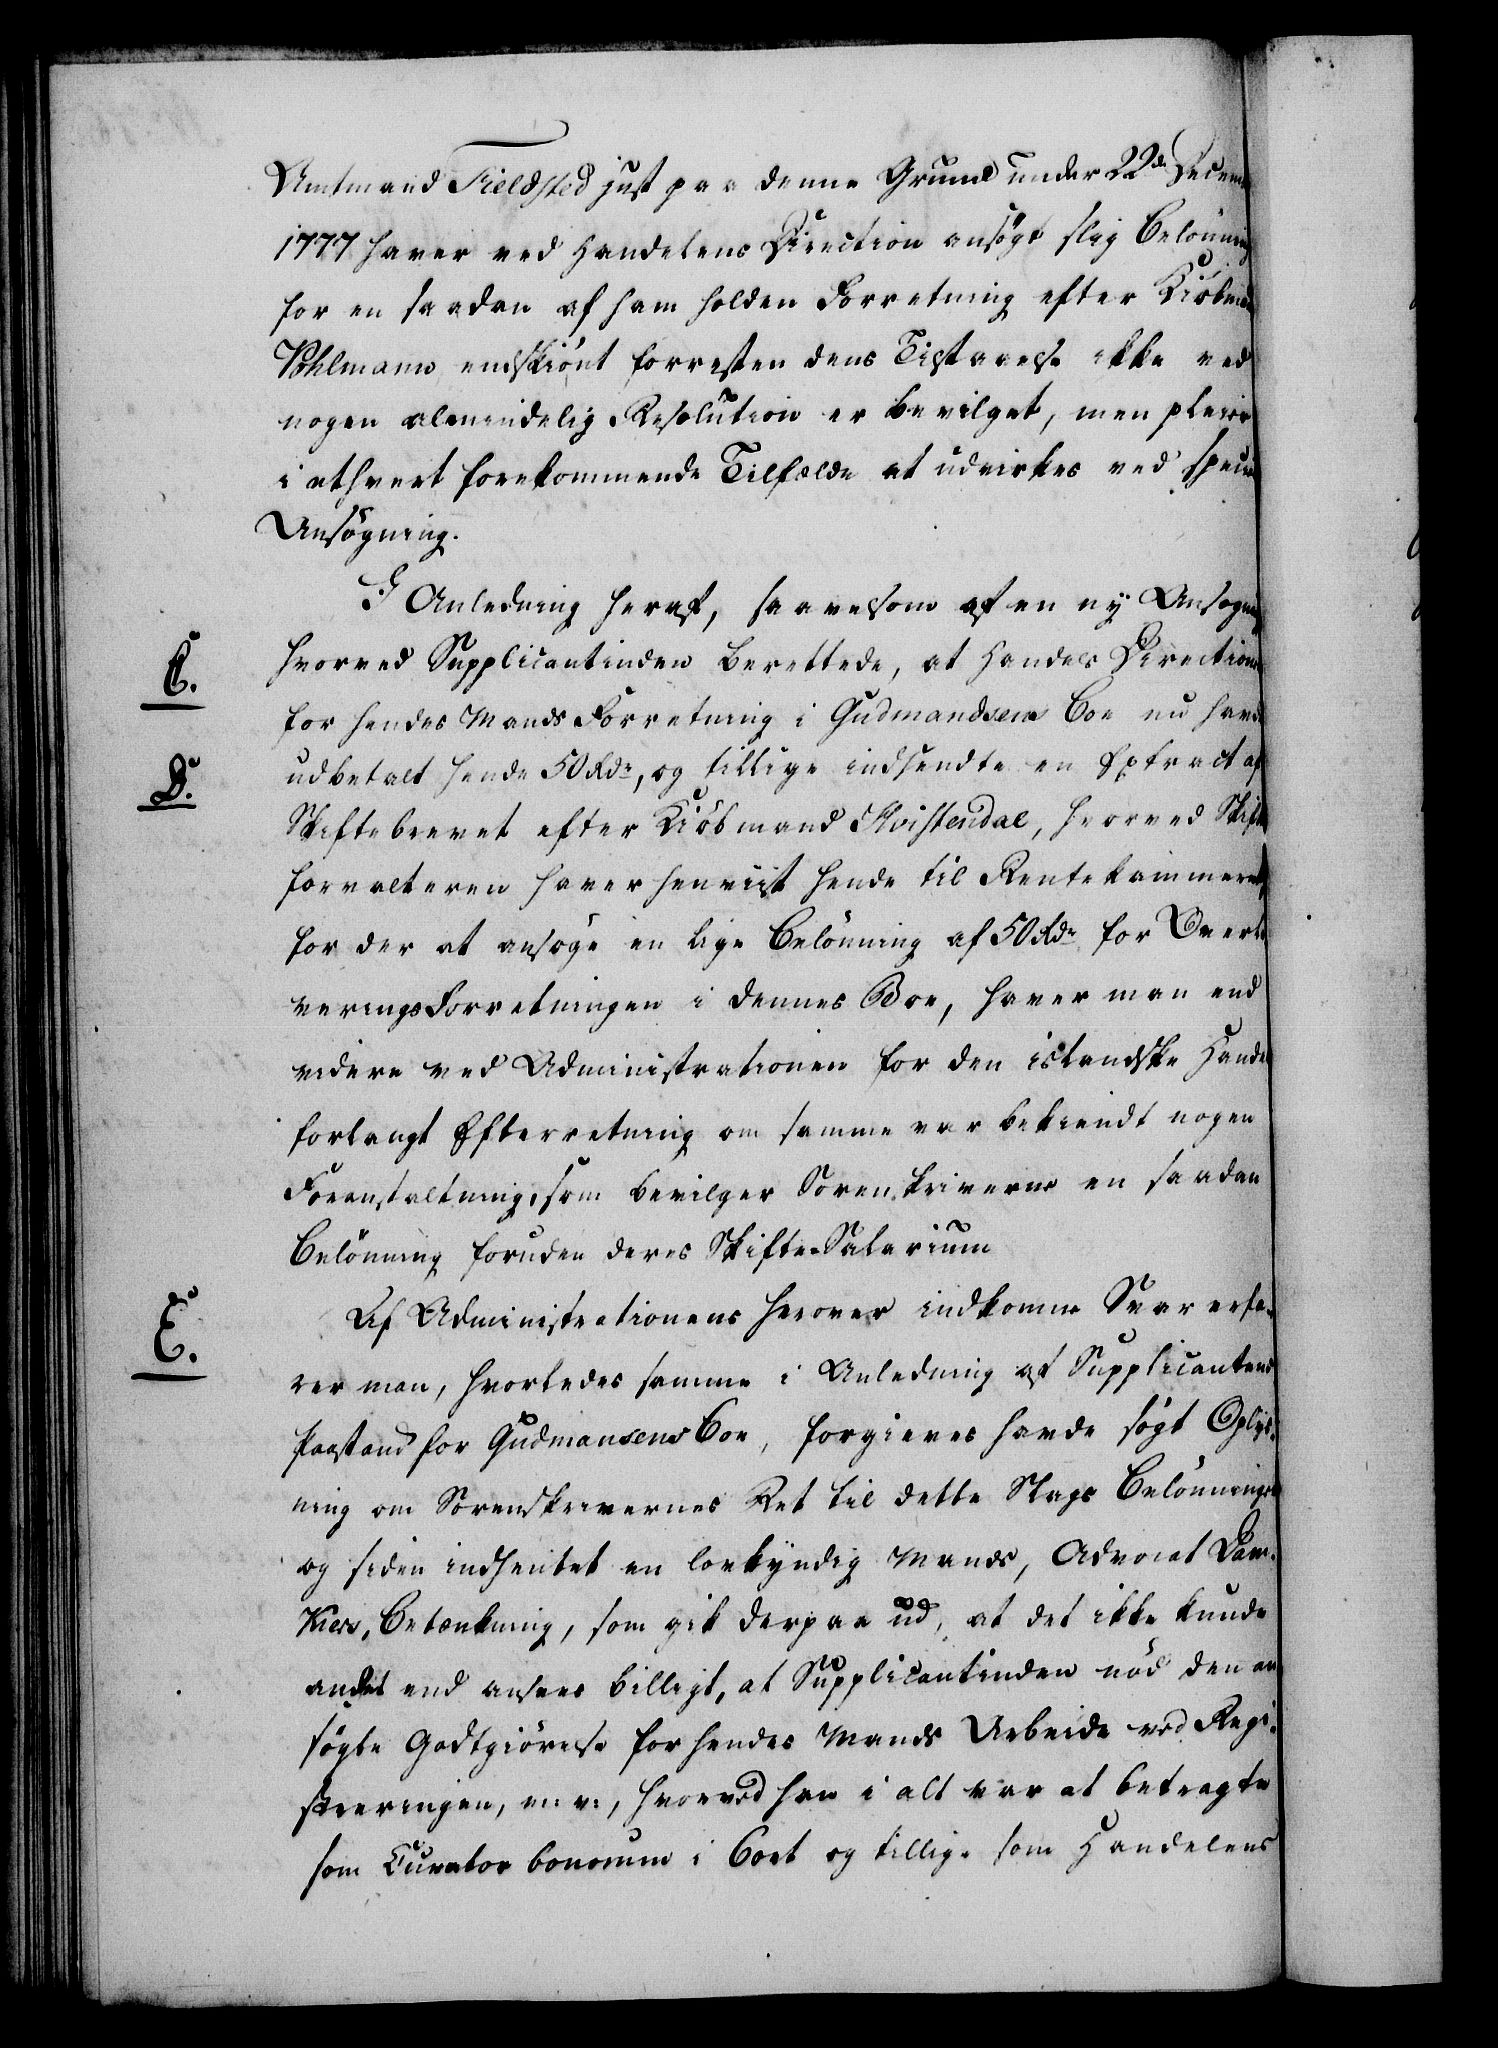 Amtmand Fieldsted just paa denne Grund under 22de Decemb
1777 haver ved Handelens Direction ansögt slig Belönning
for en saadan af ham holden Forretning efter Kiöbmd
Pohlmann endskiönt forresten dens Tilstaaelse ikke ved
nogen almindelig Resolution er bevilget, men pleier
i ethvert forekommende Tilfælde at udvirkes ved speciel
Ansögning.
I Anledning heraf, saavelsom af en ny Ansögning
C.
hvorved Supplicantinden berettede, at Handels Directionen
for hendes Mands Forretning i Gudmandsens Boe nu havde
D.
udbetalt hende 50 Rdr, og tillige indsendte en Extract af
Skiftebrevet efter Kiöbmand Hvistendal, hvorved Skifte
forvalteren haver henviist hende til Rentekammeret,
for der at ansöge en lige Belönning af 50 Rdr for Overle
veringsForretningen i dennes Boe, haver man end
videre ved Administrationen for den islandske Handel
forlangt Efterretning om samme var bekiendt nogen
Foranstaltning, som bevilger Sorenskriverne en saadan
Belönning foruden deres Skifte-Salarium
E.
Af Administrationens herover indkomne Svar erfa-
rer man, hvorledes samme i Anledning af Supplicantens
Paastand for Gudmansens Boe, forgieves havde sögt Oplys-
ning om Sorenskrivernes Ret til dette Slags Belönninger
og siden indhentet en lovkyndig Mands, Advocat Dam-
kiers, Betænkning, som gik derpaa ud, at det ikke kunde
andet end ansees billigt, at Supplicantinden nöd den an
sögte Godtgiörelse for hendes Mands Arbeide ved Regi-
streringen, m: v:, hvorved han i alt var at betragte
som Curator bonorum i Boet og tillige som Handelens